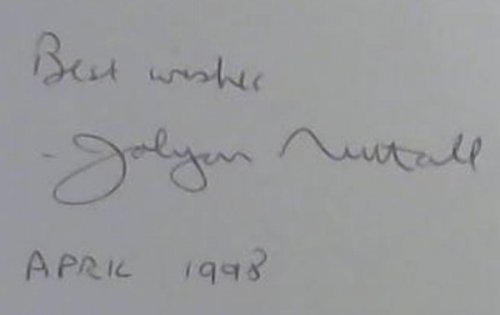 Best wishes
- Jolyon Nuttall
APRIL 1998